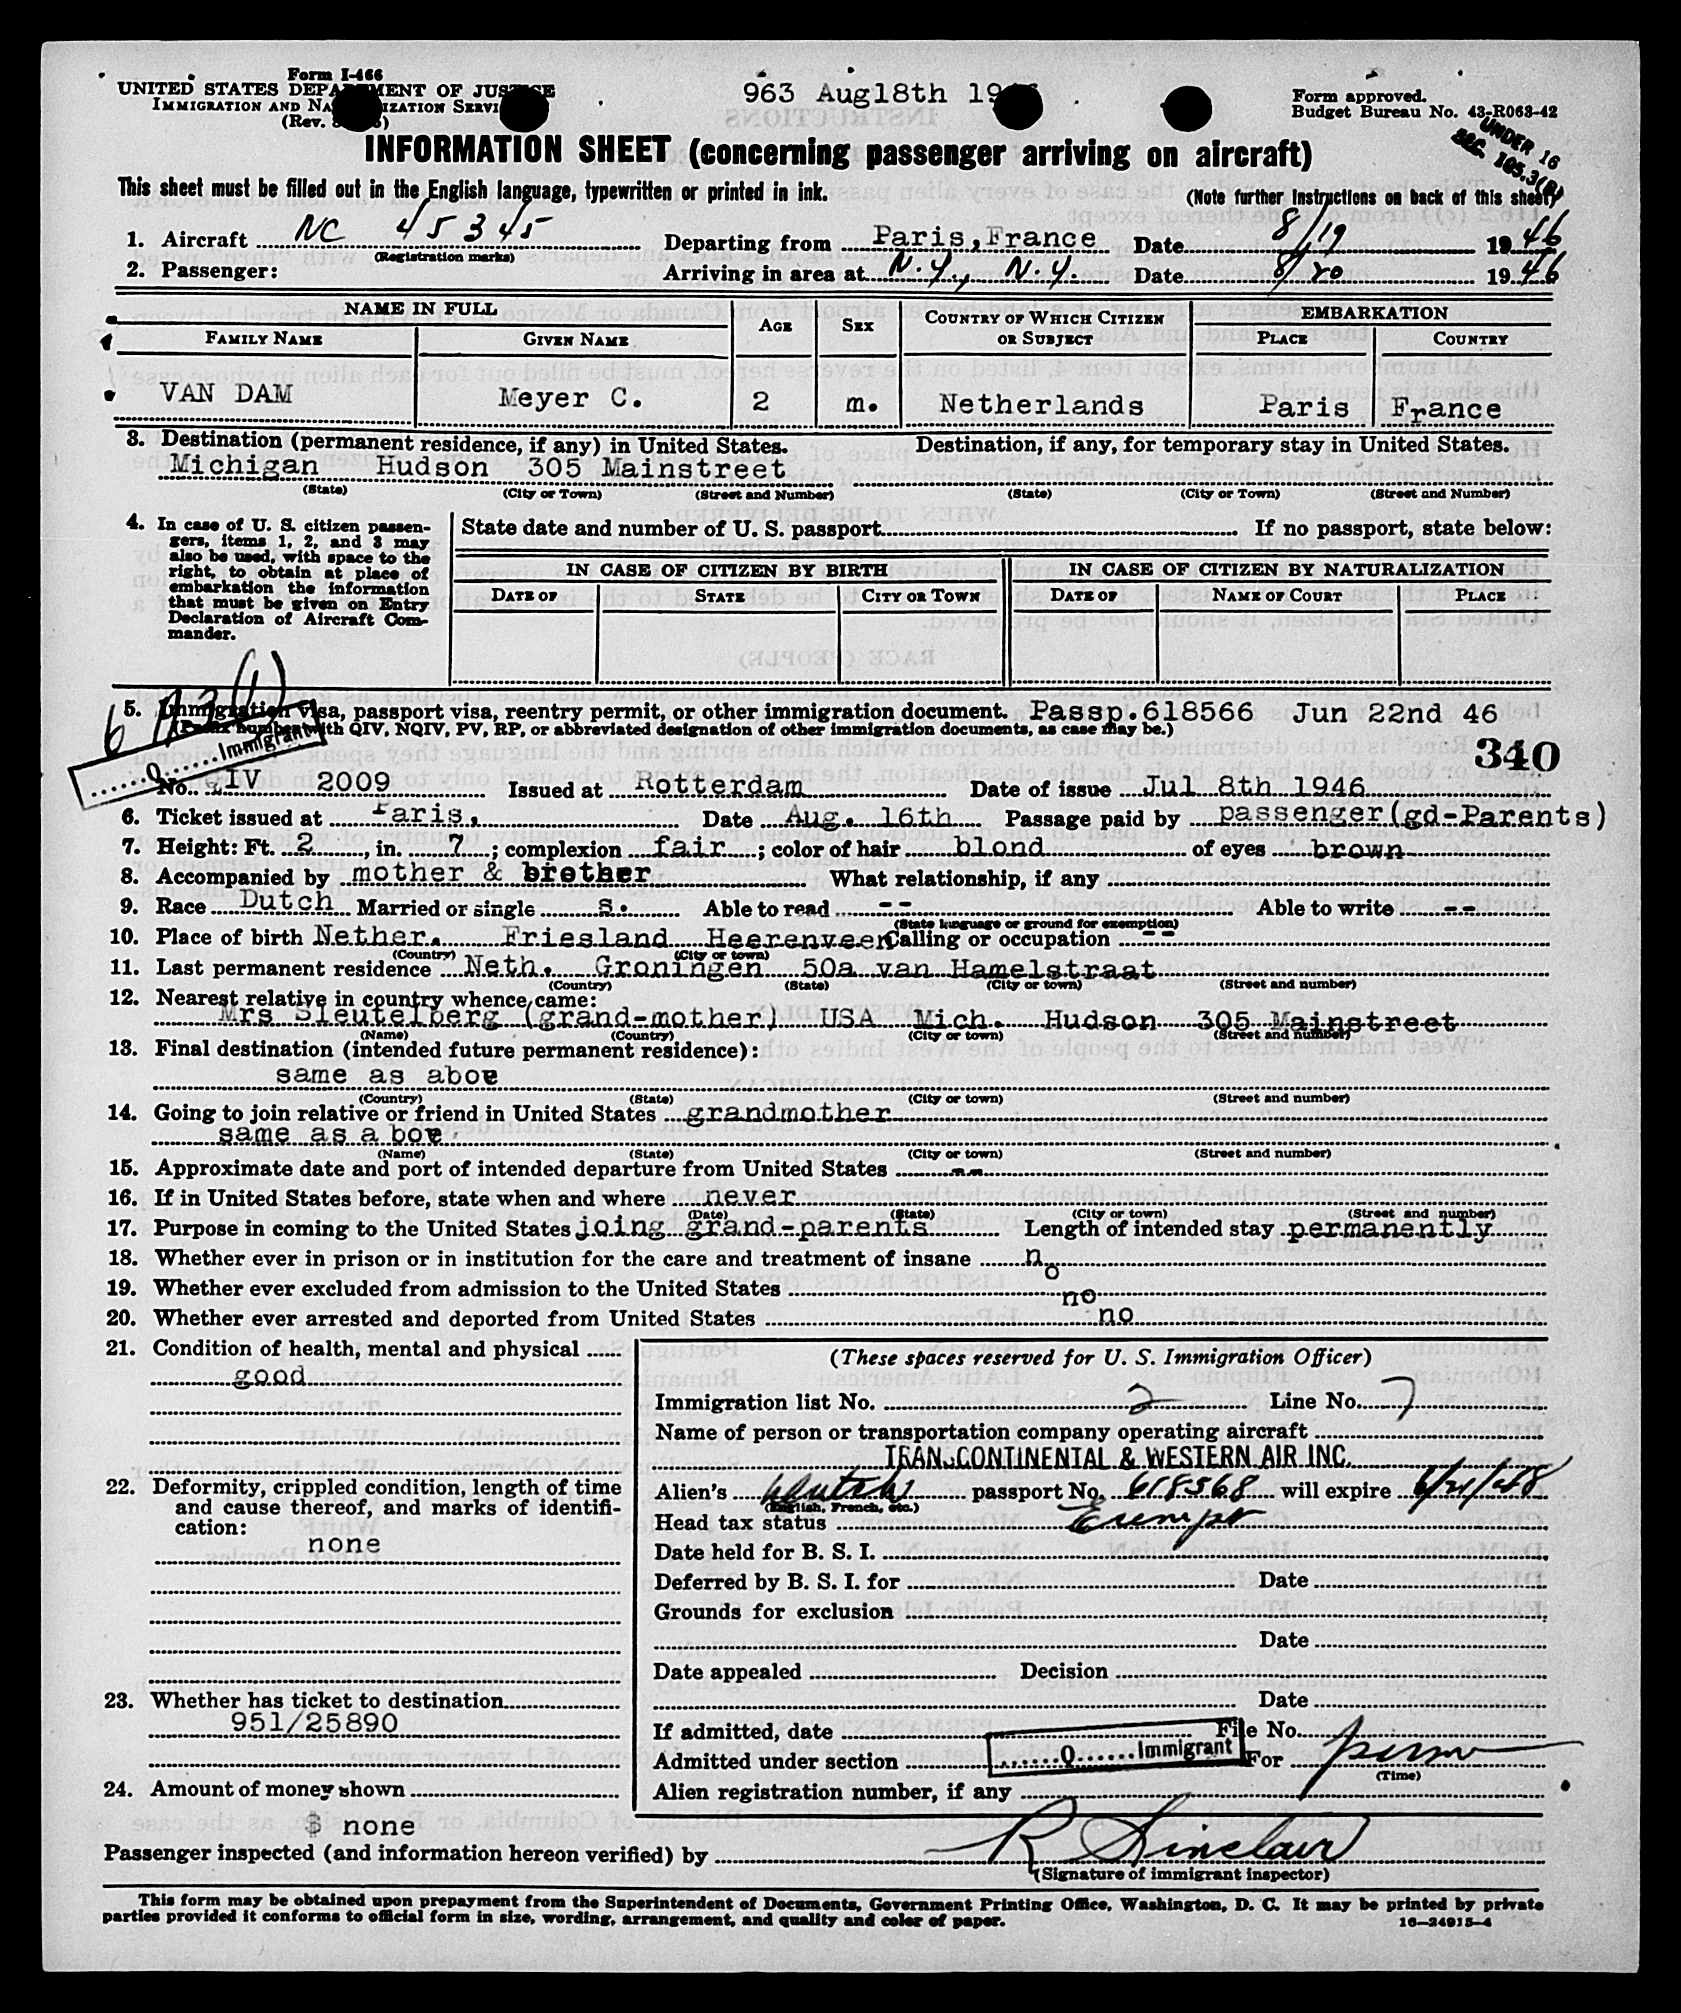 Form I-466
UNITED STATES DEPARTMENT OF JUSTICE
IMMIGRATION AND NATURALIZATION SERVICE
(Rev.
963 Aug18th 19
Form approved.
Budget Bureau No. 43-R068-42
UNDER 16
SEC. 105.3(B)
INFORMATION SHEET (concerning passenger arriving on aircraft)
This sheet must be filled out in the English language, typewritten or printed in ink.
(Note further instructions on back of this sheet)
1. Aircraft NC 45345 Departing from Paris, France Date 8/19 1946
(Registration marks)
2. Passenger: Arriving in area at N.Y., N.Y. Date 8/20 1946
NAME IN FULL
FAMILY NAME GIVEN NAME AGE SEX COUNTRY OF WHICH CITIZEN OR SUBJECT EMBARKATION PLACE COUNTRY
VAN DAM Meyer C. 2 m. Netherlands Paris France
3. Destination (permanent residence, if any) in United States. Destination, if any, for temporary stay in United States.
Michigan Hudson 305 Mainstreet
(State) (City or Town) (Street and Number) (State) (City or Town) (Street and Number)
4. In case of U. S. citizen passen-
gers, items 1, 2, and 3 may
also be used, with space to the
right, to obtain at place of
embarkation the information
that must be given on Entry
Declaration of Aircraft Com-
mander.
State date and number of U. S. passport If no passport, state below:
IN CASE OF CITIZEN BY BIRTH IN CASE OF CITIZEN BY NATURALIZATION
DATE OF STATE CITY OR TOWN DATE OF NAME OF COURT PLACE
5. Immigration visa, passport visa, reentry permit, or other immigration document. Passp.618566 Jun 22nd 46
(Prefix number with QIV, NQIV, PV, RP, or abbreviated designation of other immigration documents, as case may be.)
Q Immigrant
340
No. QIV 2009 Issued at Rotterdam Date of issue Jul 8th 1946
6. Ticket issued at Paris, Date Aug. 16th Passage paid by passenger(gd-Parents)
7. Height: Ft. 2, in. 7; complexion fair; color of hair blond of eyes brown
8. Accompanied by mother & brother What relationship, if any
9. Race Dutch Married or single s. Able to read -- Able to write --
(State language or ground for exemption)
10. Place of birth Nether. Friesland Heerenveen Calling or occupation --
(Country) (City or town)
11. Last permanent residence Neth. Groningen 50a van Hamelstraat
(Country) (State) (City or town) (Street and number)
12. Nearest relative in country whence came:
Mrs Sleutelberg (grand-mother) USA Mich. Hudson 305 Mainstreet
(Name) (Country) (City or town) (Street and number)
13. Final destination (intended future permanent residence):
same as above
(Country) (State) (City or town) (Street and number)
14. Going to join relative or friend in United States grandmother
same as a bove
(Name) (State) (City or town) (Street and number)
15. Approximate date and port of intended departure from United States --
16. If in United States before, state when and where never
(Date) (State) (City or town) (Street and number)
17. Purpose in coming to the United States joing grand-parents Length of intended stay permanently
18. Whether ever in prison or in institution for the care and treatment of insane no
19. Whether ever excluded from admission to the United States no
20. Whether ever arrested and deported from United States no
21. Condition of health, mental and physical
good
22. Deformity, crippled condition, length of time
and cause thereof, and marks of identifi-
cation:
none
23. Whether has ticket to destination
951/25890
24. Amount of money shown
$ none
(These spaces reserved for U. S. Immigration Officer)
Immigration list No. 2 Line No. 7
Name of person or transportation company operating aircraft
TRANSCONTINENTAL & WESTERN AIR INC.
Alien's Dutch passport No. 618568 will expire 6/21/48
(English, French, etc.)
Head tax status Exempt
Date held for B. S. I.
Deferred by B. S. I. for Date
Grounds for exclusion
Date
Date appealed Decision
Date
If admitted, date File No.
Admitted under section Q Immigrant For perm
(Time)
Alien registration number, if any
Passenger inspected (and information hereon verified) by R Sinclair
(Signature of immigrant inspector)
This form may be obtained upon prepayment from the Superintendent of Documents, Government Printing Office, Washington, D. C. It may be printed by private
parties provided it conforms to official form in size, wording, arrangement, and quality and color of paper.
16—24915-4